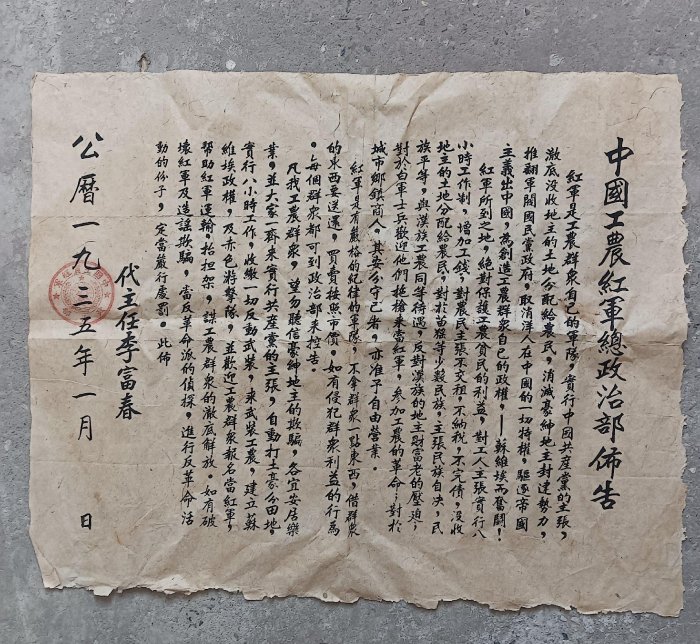 中國工农紅軍總政治部佈告
紅軍是工农群衆自己的軍隊，實行中國共産黨的主張，
澈底没收地主的土地分配給農民，消滅豪紳地主封建勢力，
推翻軍閥國民黨政府，取消洋人在中國的一切特權，驅逐帝國
主義出中國，為創造工農群衆自己的政權，—蘇維埃而奮鬪！
紅軍所到之地，絶對保護工農貧民的利益，對工人主張實行八
小時工作制，增加工錢，對農民主張不交租，不納税，不完債，没收
地主的土地分配給農民，對於苗猺等少數民族，主張民族自决，民
族平等，與漢族工農同等待遇，反對漢族的地主財富老的壓迫；
對於白軍士兵歡迎他們拖槍来當紅軍，参加工農的革命；對於
城市鄉鎮商人，其安分守己者，亦准予自由營業。
紅軍是有嚴格的紀律的軍隊，不拿群衆一點東西，借群衆
的東西要送還，買賣按照市價。如有侵犯群衆利益的行為
。每個群衆都可到政治部来控告。
凡我工農群衆，望勿聽信豪紳地主的欺騙，各宜安居樂
業，並大家一齊来實行共産黨的主張，自動打土豪分田地，
實行八小時工作，收繳一切反動武装，来武装工農，建立蘇
維埃政權，及赤色游擊隊，並歡迎工農群衆報名當紅軍，
帮助紅軍運輸，抬担架，謀工農群衆的澈底解放。如有破
壊紅軍及造謡欺騙，當反革命派的偵探，進行反革命活
動的份子，定當嚴行處罰。此佈
代主任李富春
公曆一九三五年一月 日